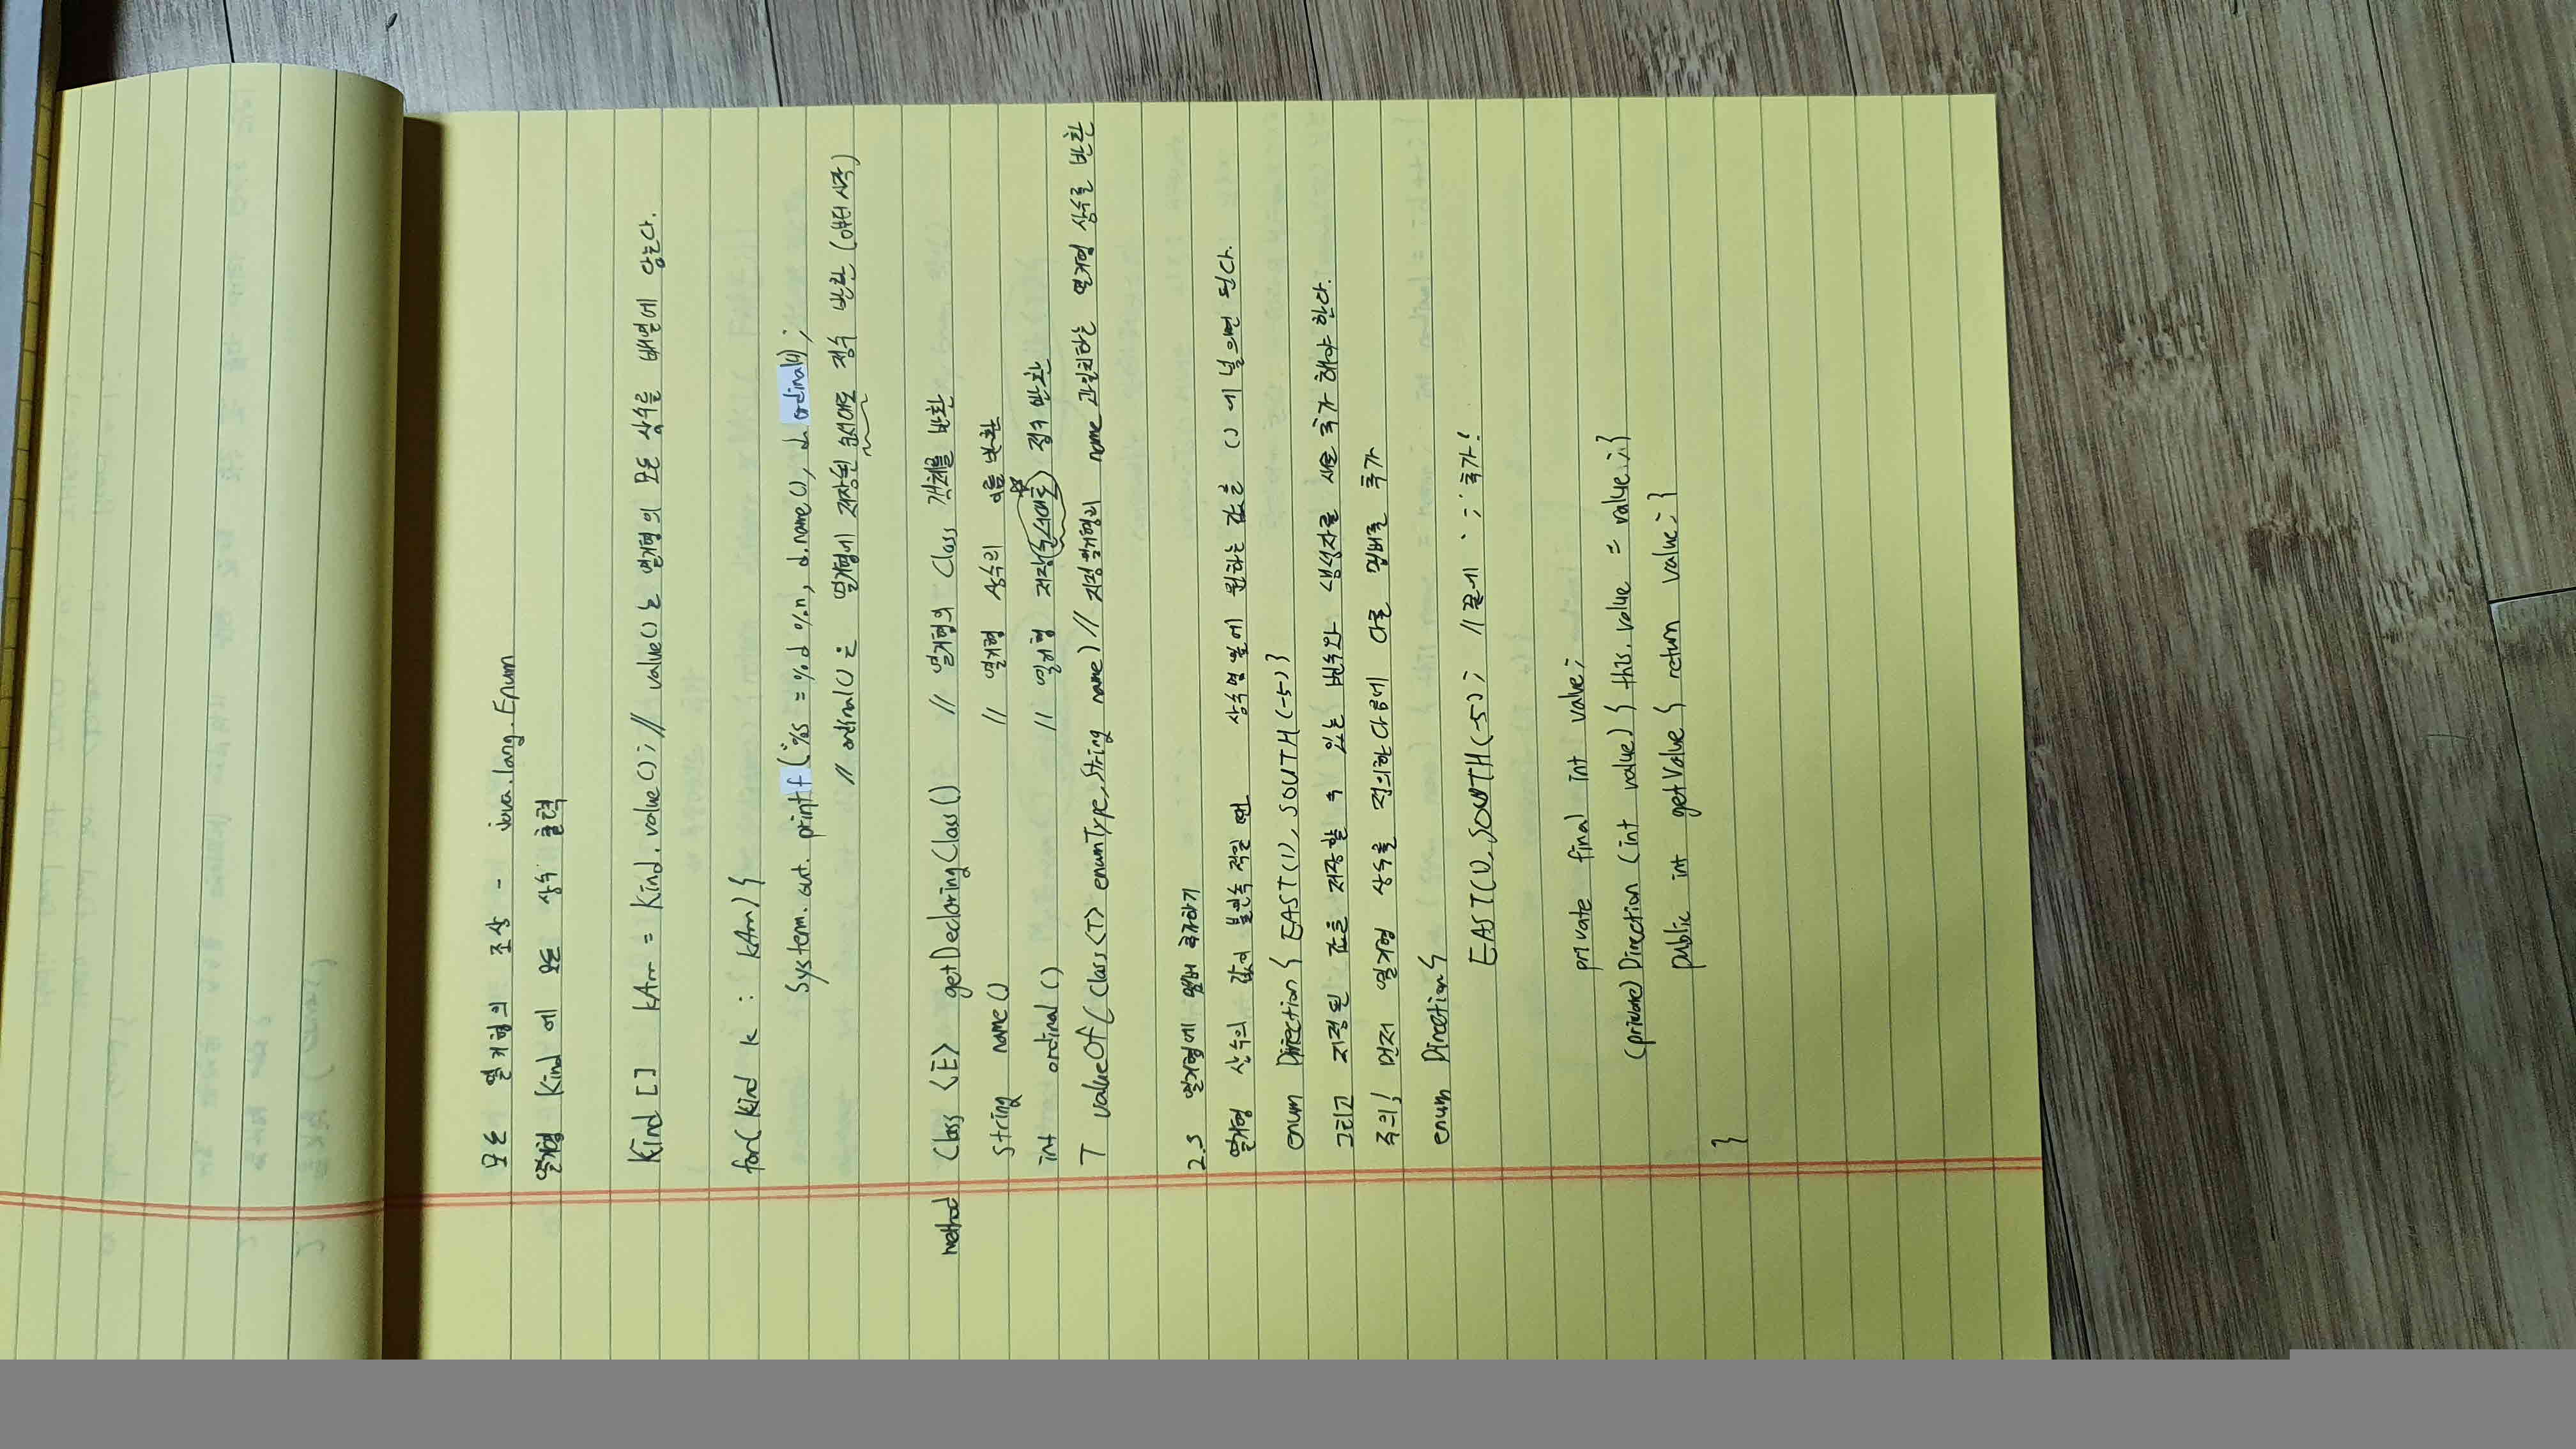 모든 열거형의 조상 - java.lang.Enum
열거형 Kind 에 모든 상수 출력
Kind [] kArr = Kind.value(); // value()는 열거형의 모든 상수를 배열에 담는다.
for( Kind k : kArr) {
System.out.printf("%s = %d %n, d.name(), d.ordinal());
// ordinal()은 열거형에 저장된 순서대로 정수 반환 (0부터 시작)
method Class <E> getDeclaringClass() // 열거형의 Class 객체를 반환
string name() // 열거형 상수의 이름 반환
int ordinal () // 열거형 저장(순서대로) 정수 반환
T valueOf( Class<T> enumType, String name) // 지정 열거형의 name 과일치하는 열거형 상수를 반환
2.3 열거형에 멤버 추가하기
열거형 상수의 값이 불연속 적일 땐 상수명 옆에 원하는 값을 () 에 넣으면 된다.
enum Direction { EAST(1), SOUTH(-5) }
그리고 지정된 값을 저장할 수 있는 변수와 생성자를 새로 추가 해야 한다.
주의! 먼저 열거형 상수를 정의한다음에 다른 멤버를 추가
enum Direction {
EAST(1), SOUTH(-5); // 끝에 ';' 추가!
private final int value;
(private) Direction (int value) { this.value = value; }
public int getValue { return value; }
}